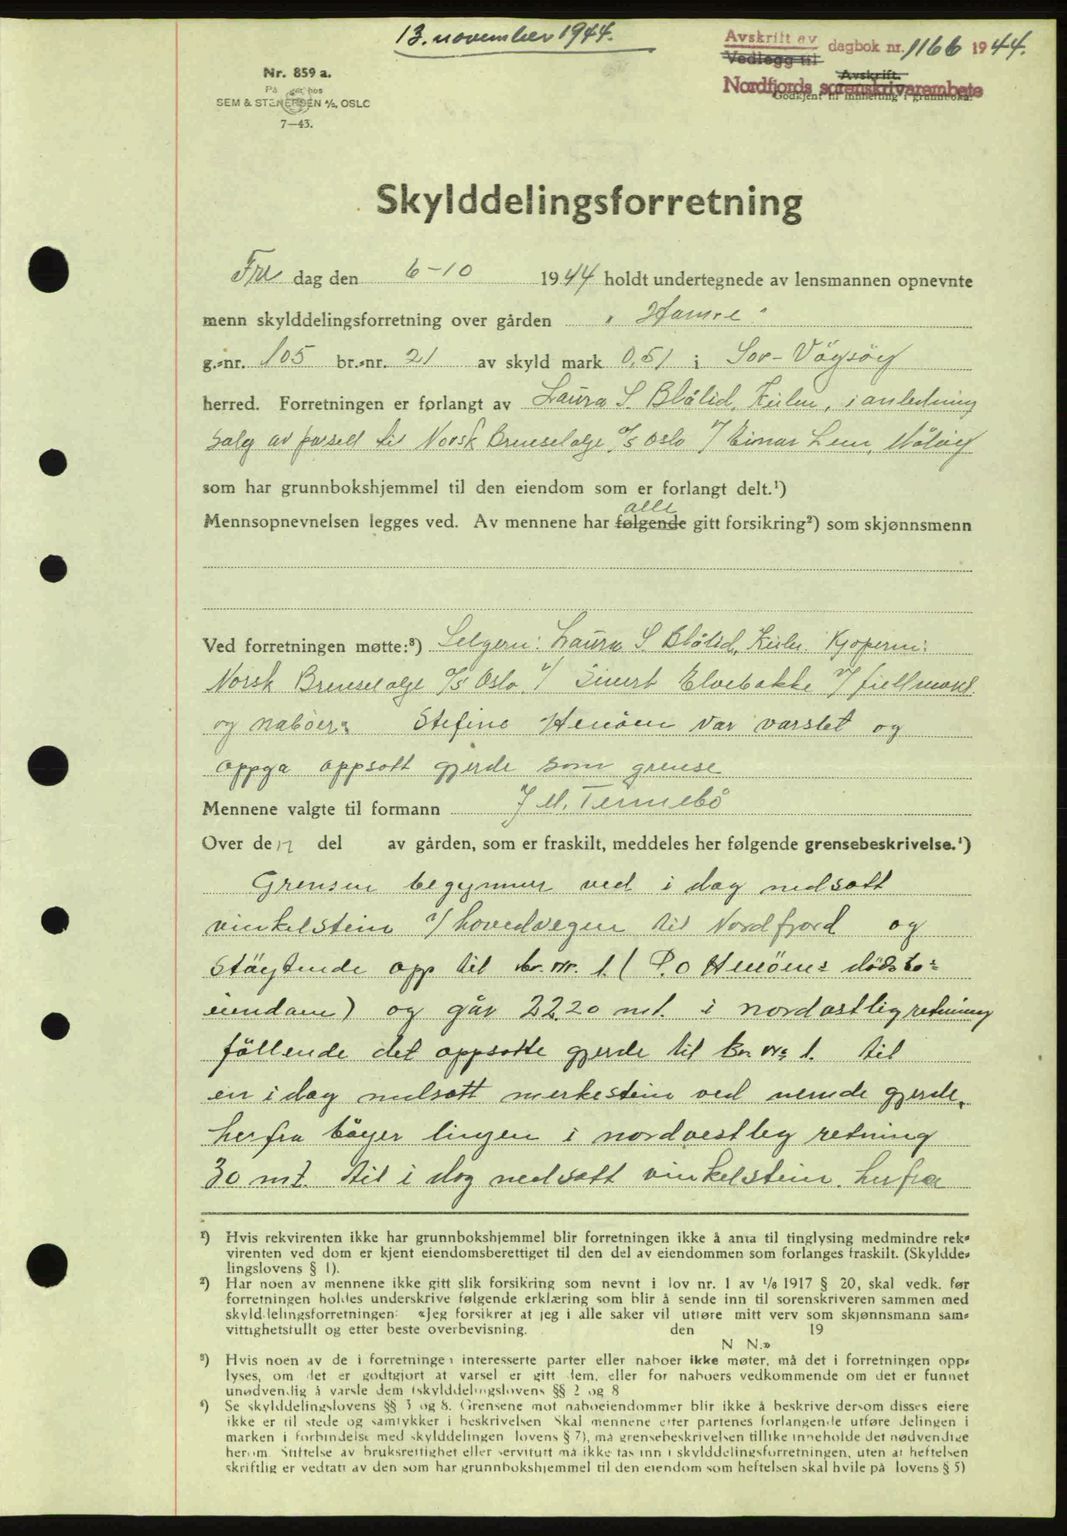 13. november 1944.
Avskrift av
Vedlegg til
dagbok nr. 1166 1944.
Avskrift.
Nordfjords sorenskrivarembete
Godkjent til innhefting i grunnboka.
Nr. 859 a.
På lager hos
SEM & STENERSEN A/S, OSLO
7-43.
Skylddelingsforretning
Fre dag den 6-10 1944 holdt undertegnede av lensmannen opnevnte
menn skylddelingsforretning over gården "Hamre"
g.-nr. 105 br.-nr. 21 av skyld mark 0,51 i Sør-Vågsøy
herred. Forretningen er forlangt av Laura S. Blålid, Keilen, i anledning
salg av parsell til Norsk Brenselolge A/S Oslo v/ Einar Lem, Måløy
som har grunnbokshjemmel til den eiendom som er forlangt delt.¹)
alle
Mennsopnevnelsen legges ved. Av mennene har følgende gitt forsikring²) som skjønnsmenn
Ved forretningen møtte:³) Selgeren: Laura S. Blålid, Keilen. Kjøperen:
Norsk Brenselolge A/S Oslo v/ Sivert Elvebakke v/ fullmakt
og naboer: Stefine Henøen var varslet og
oppga oppsatt gjerde som grense
Mennene valgte til formann J. M. Tennebö
Over den del av gården, som er fraskilt, meddeles her følgende grensebeskrivelse.⁴)
Grensen begynner ved i dag nedsatt
vinkelstein v/ hovedvegen til Nordfjord og
støytende opp til br. nr. 1. (P.O Henöens dödsbo=
eiendom) og går 22.20 mt. i nordostlig retning
föllende det oppsatte gjerde til br. nr. 1. til
en i dag nedsatt merkestein ved nevnde gjerde,
herfra böyer linjen i nordvestleg retning
30 mt. til i dag nedsatt vinkelstein. herfra
¹) Hvis rekvirenten ikke har grunnbokshjemmel blir forretningen ikke å anta til tinglysing medmindre rek-
virenten ved dom er kjent eiendomsberettiget til den del av eiendommen som forlanges fraskilt. (Skyldde-
lingslovens § 1).
²) Har noen av mennene ikke gitt slik forsikring som nevnt i lov nr. 1 av 1/6 1917 § 20, skal vedk. før
forretningen holdes underskrive følgende erklæring som blir å sende inn til sorenskriveren sammen med
skylddelingsforretningen: «Jeg forsikrer at jeg i alle saker vil utføre mitt verv som skjønnsmann sam-
vittighetsfullt og etter beste overbevisning. den 19
N. N.»
³) Hvis noen av de i forretningen interesserte parter eller naboer ikke møter, må det i forretningen opp-
lyses, om det er godtgjort at varsel er gitt dem, eller for naboers vedkommende om det er funnet
unødvendig å varsle dem (skylddelingslovens §§ 2 og 8
⁴) Se skylddelingslovens §§ 3 og 8. Grensene mot naboeiendommer blir ikke å beskrive dersom disses eiere
ikke er til stede og samtykker i beskrivelsen Skal mennene etter partenes forlangende utføre delingen i
marken i forbindelse med skylddelingen (lovens § 7), må grensebeskrivelsen tillike inneholde det nødvendige
herom. Stiftelse av bruksrettighet eller servitutt må ikke tas inn i skylddelingsforretningen, uten at heftelsen
skriftlig er vedtatt av den som har grunnbokshjemmel til den eiendom som heftelsen skal hvile på (lovens § 5)